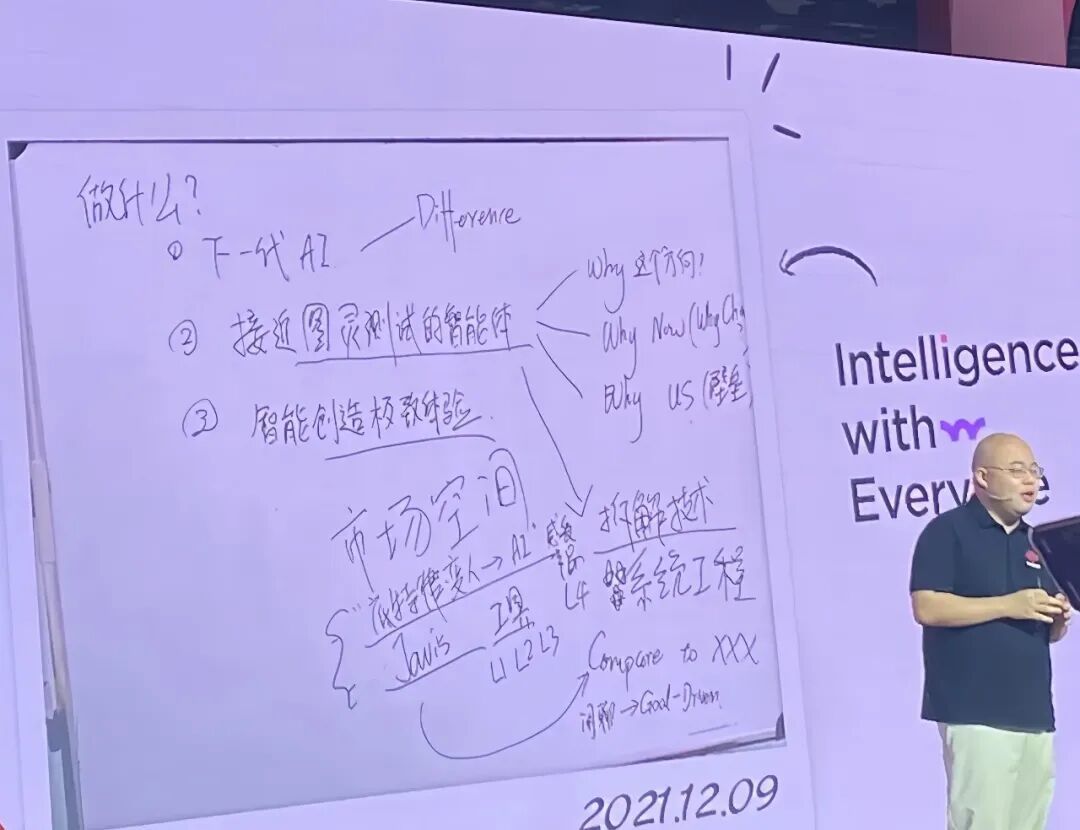 做什么?
① 下一代 AI
Difference
② 接近图灵测试的智能体
Why 这个方向?
Why Now (Why Ch
Why US (壁垒)
③ 智能创造极致体验.
市场空间
拆解技术
系统工程
变人→AI
Javis
工具
L1 L2 L3
L4
Compare to XXX
闲聊→Goal-Driven
2021.12.09
Intelligence
with
Every
e